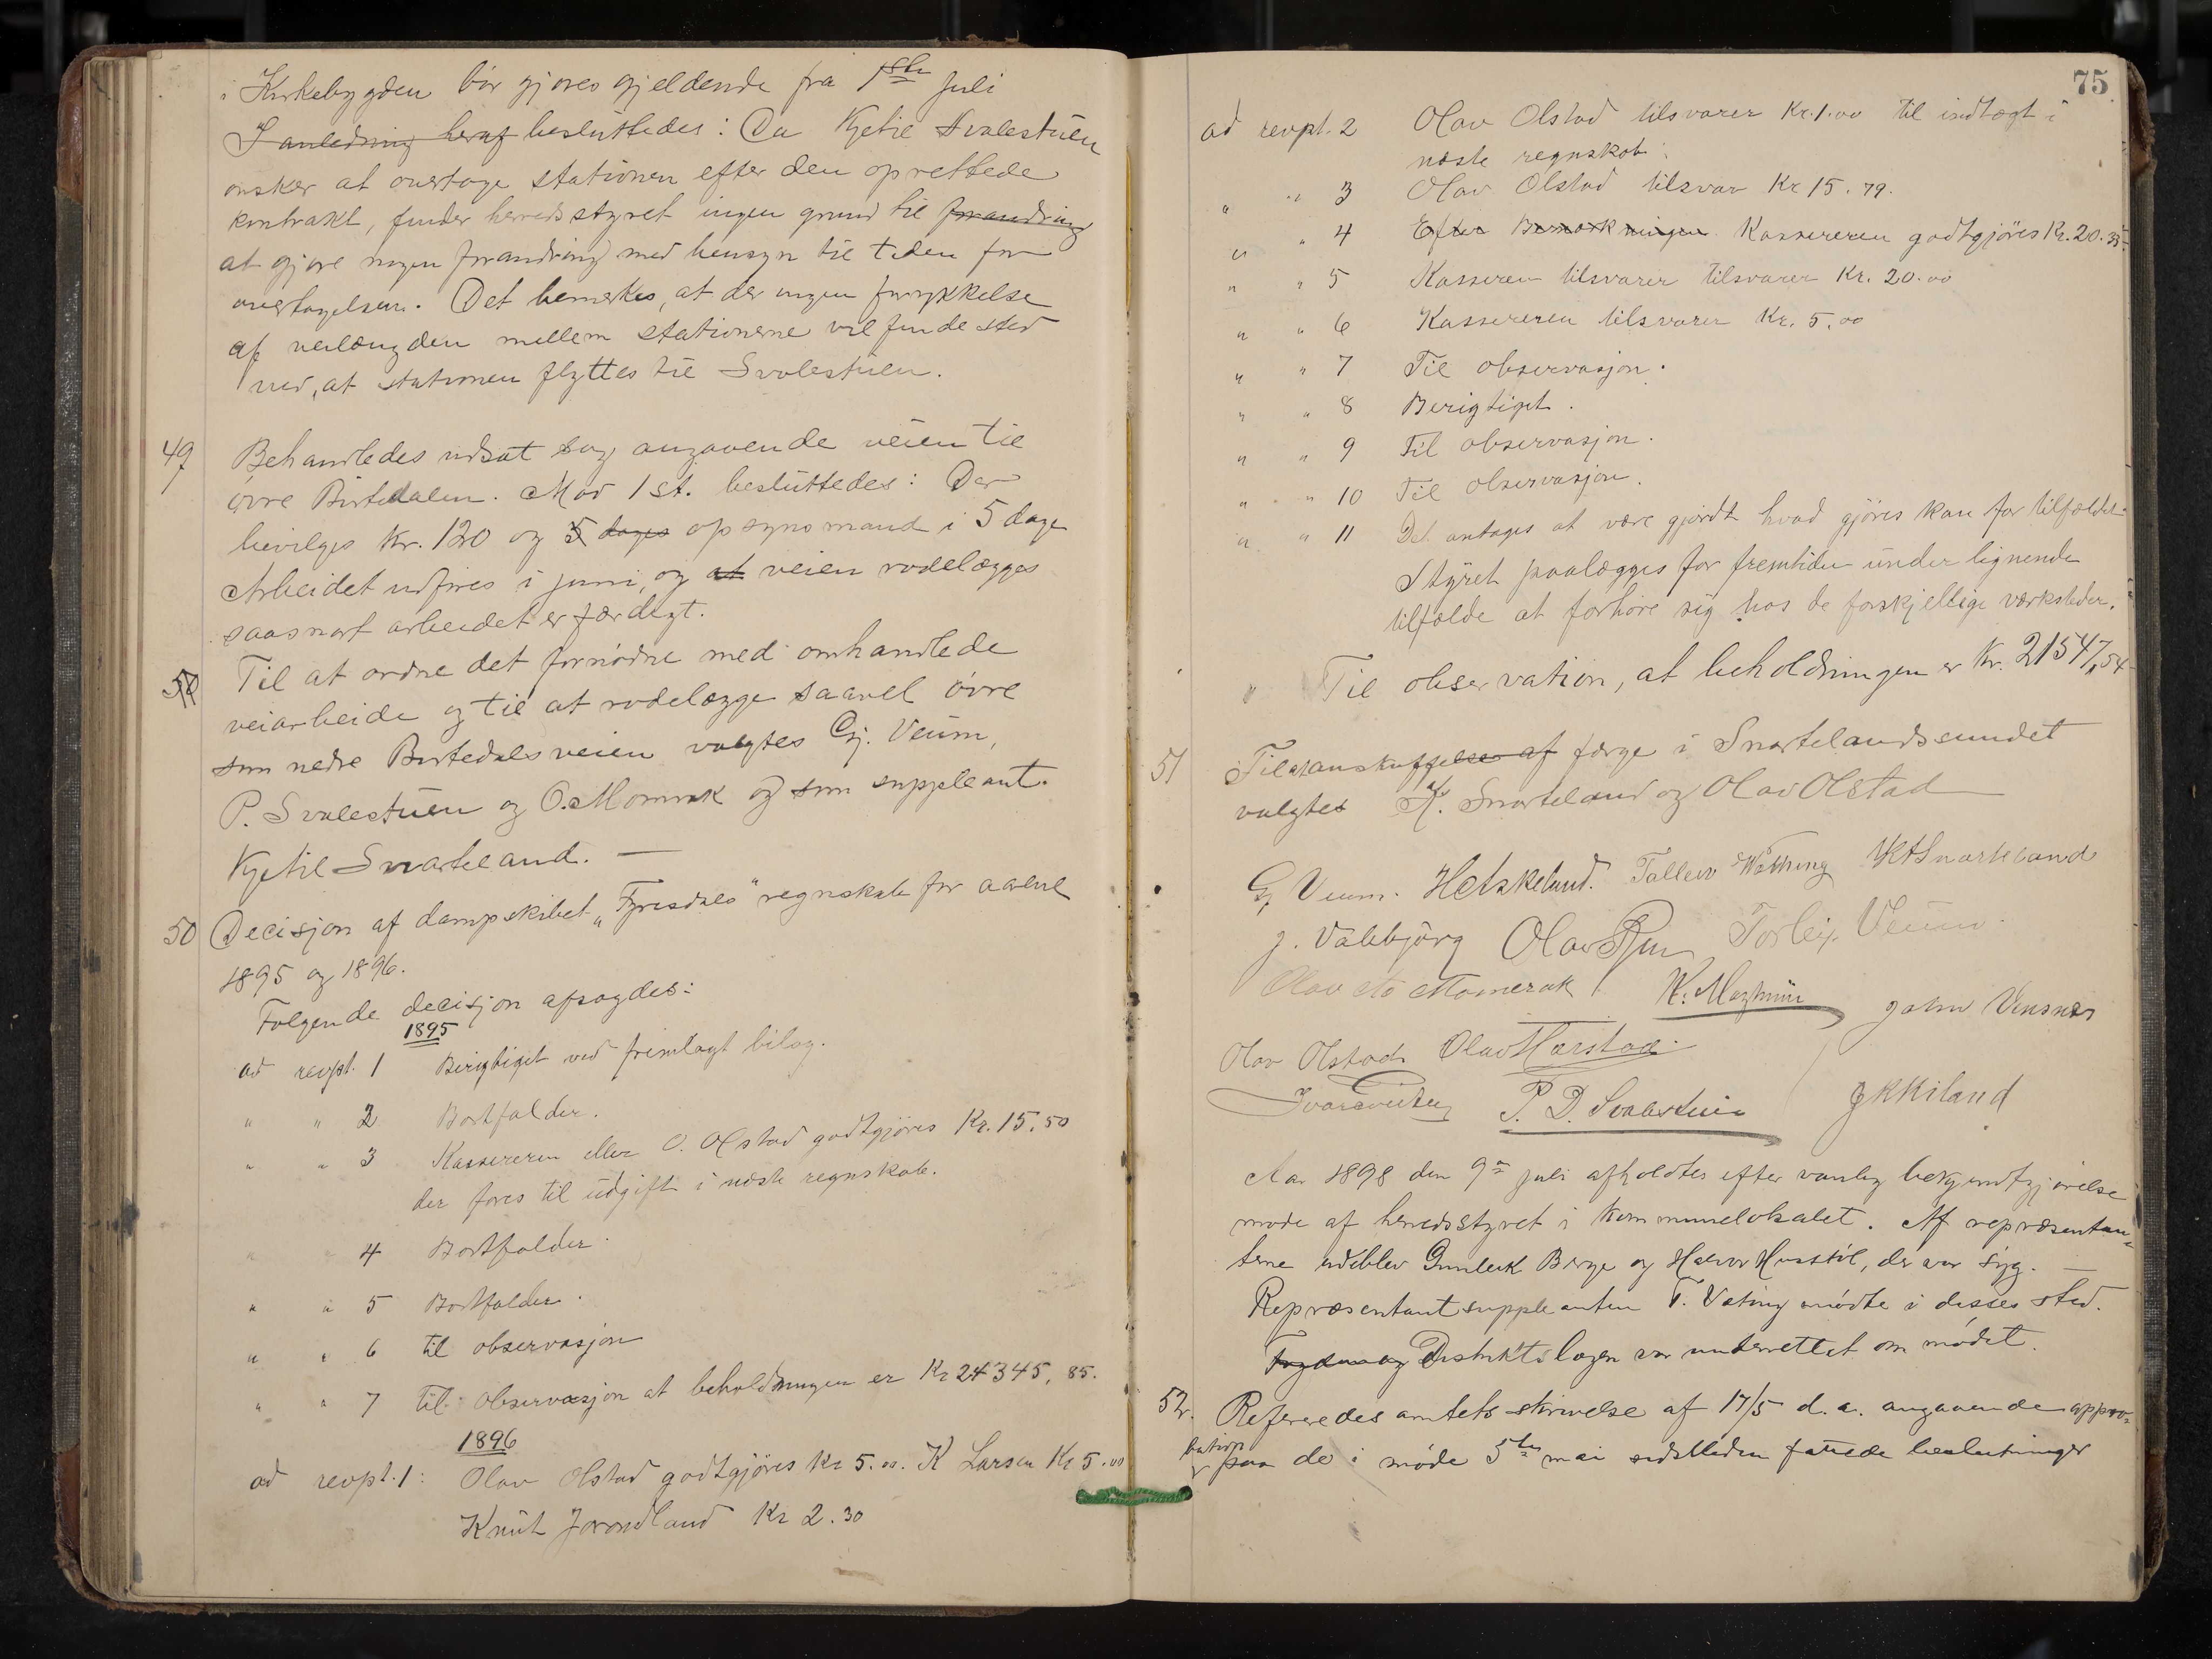 i Kirkebygden bør gjøres gjeldende fra 1ste Juli
I anledning heraf besluttedes: Da Kjetil Svalestuen
ønsker at overtage stationen efter den oprettede
kontrakt, finder herredsstyret ingen grund til forandring
at gjøre nogen forandring med hensyn til tiden for
overtagelsen. Det bemerkes, at der ingen forrykkelse
af veilængden mellem stationerne vil finde sted
ved, at stationen flyttes til Svalestuen.
49 Behandledes udsat sag angaaende veien til
øvre Birtedalen. Mod 1 st. besluttedes: Der
bevilges Kr. 120 og 5 dages opsynsmand i 5 dage
Arbeidet udføres i juni, og at veien rodelægges
saasnart arbeidet er færdigt.
50 Til at ordne det fornødne med omhandlede
veiarbeide og til at rodelægge saavel øvre
som nedre Birtedalsveien valgtes Gj. Veum,
P. Svalestuen og O. Momrak og som suppleant
Kjetil Snarteland. —
50 Decisjon af dampskibet „Fyresdals" regnskab for aarene
1895 og 1896.
Følgende decisjon afsagdes:
1895
ad revpt. 1 Berigtiget ved fremlagt bilag.
" " 2 Bortfalder.
" " 3 Kassereren eller O. Olstad godtgjøres Kr. 15.50
der føres til udgift i næste regnskab.
" " 4 Bortfalder.
" " 5 Bortfalder.
" " 6 til observasjon
" " 7 til observasjon at beholdningen er Kr 24345, 85.
1896
ad revpt. 1: Olav Olstad godtgjøres Kr 5.00. K Larsen Kr 5.00
Knut Jorondland Kr 2.30
75
ad revpt. 2 Olav Olstad tilsvarer Kr. 1.00 til indtægt i
næste regnskab.
" " 3 Olav Olstad tilsvar Kr 15.79.
" " 4 Efter Bemærkningen Kassereren godtgjøres Kr. 20.35
" " 5 Kasseren tilsvarer tilsvarer Kr. 20.00
" " 6 Kassereren tilsvarer Kr. 5.00
" " 7 Til observasjon.
" " 8 Berigtiget.
" " 9 Til observasjon.
" " 10 Til observasjon.
" " 11 Det antages at være gjordt hvad gjøres kan for tilfældet.
Styret paalægges for fremtiden under lignende
tilfælde at forhøre sig hos de forskjellige værksteder.
" Til observation, at beholdningen er Kr. 21547,54
51 Til at anskaffelse af færge i Snartelandssundet
valgtes K. Snarteland og Olav Olstad
Gj Veum. H Etskeland. Talleiv Wathing KA Snarteland
J. Valebjørg Olav Rjun Torleiv Veum
Olav Momrak K. Moghus John Vensnes
Olav Olstad Olav Harstad
P. D. Svalestuen J K Kiland
Aar 1898 den 9de juli afholdtes efter vanlig bekjendtgjørelse
møde af herredsstyret i Kommunelokalet. Af repræsentan-
terne udeblev Gunleik Berge og Halvor Husstøl, der var syg. —
Repræsentantsuppleanten T. Vating mødte i disses sted.
Fogden og Distriktslægen var underrettet om mødet.
52. Refereredes amtets skrivelse af 17/5 d.a. angaaende appro-
bation paa de i møde 5te mai sidstleden fattede beslutninger